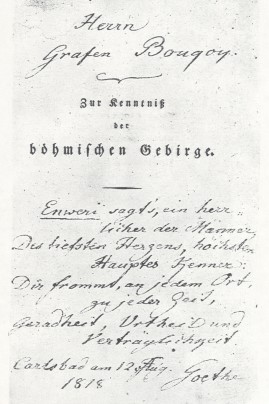 Herrn
Grafen Bouqoy.
Zur Kenntniß
der
böhmischen Gebirge.
Enweri sagt's, ein herr=
licher der Männer,
Des tiefsten Herzens, höchsten
Hauptes Kenner:
Dir frommt, an jedem Ort,
zu jeder Zeit,
Geradheit, Urtheil und
Verträglichkeit
Carlsbad am 12 Aug.
1818 Goethe